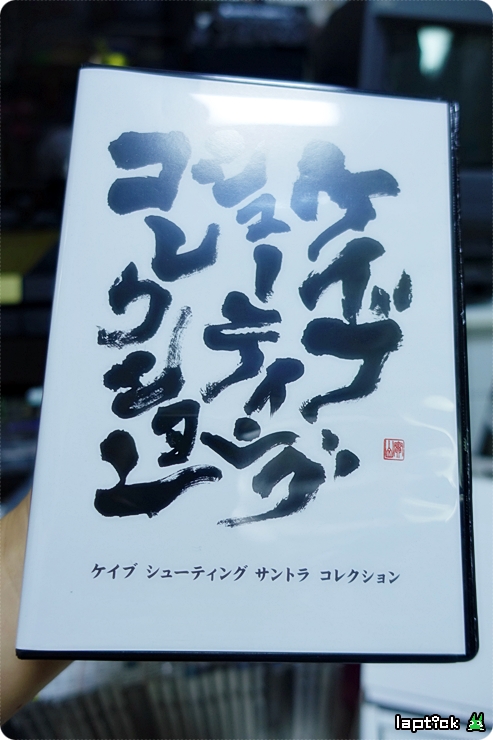 ケイブ
シューティング
コレクション
ケイブ シューティング サントラ コレクション
laptick